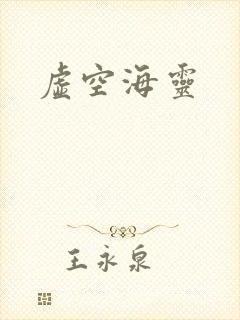 虛空海靈
王永泉